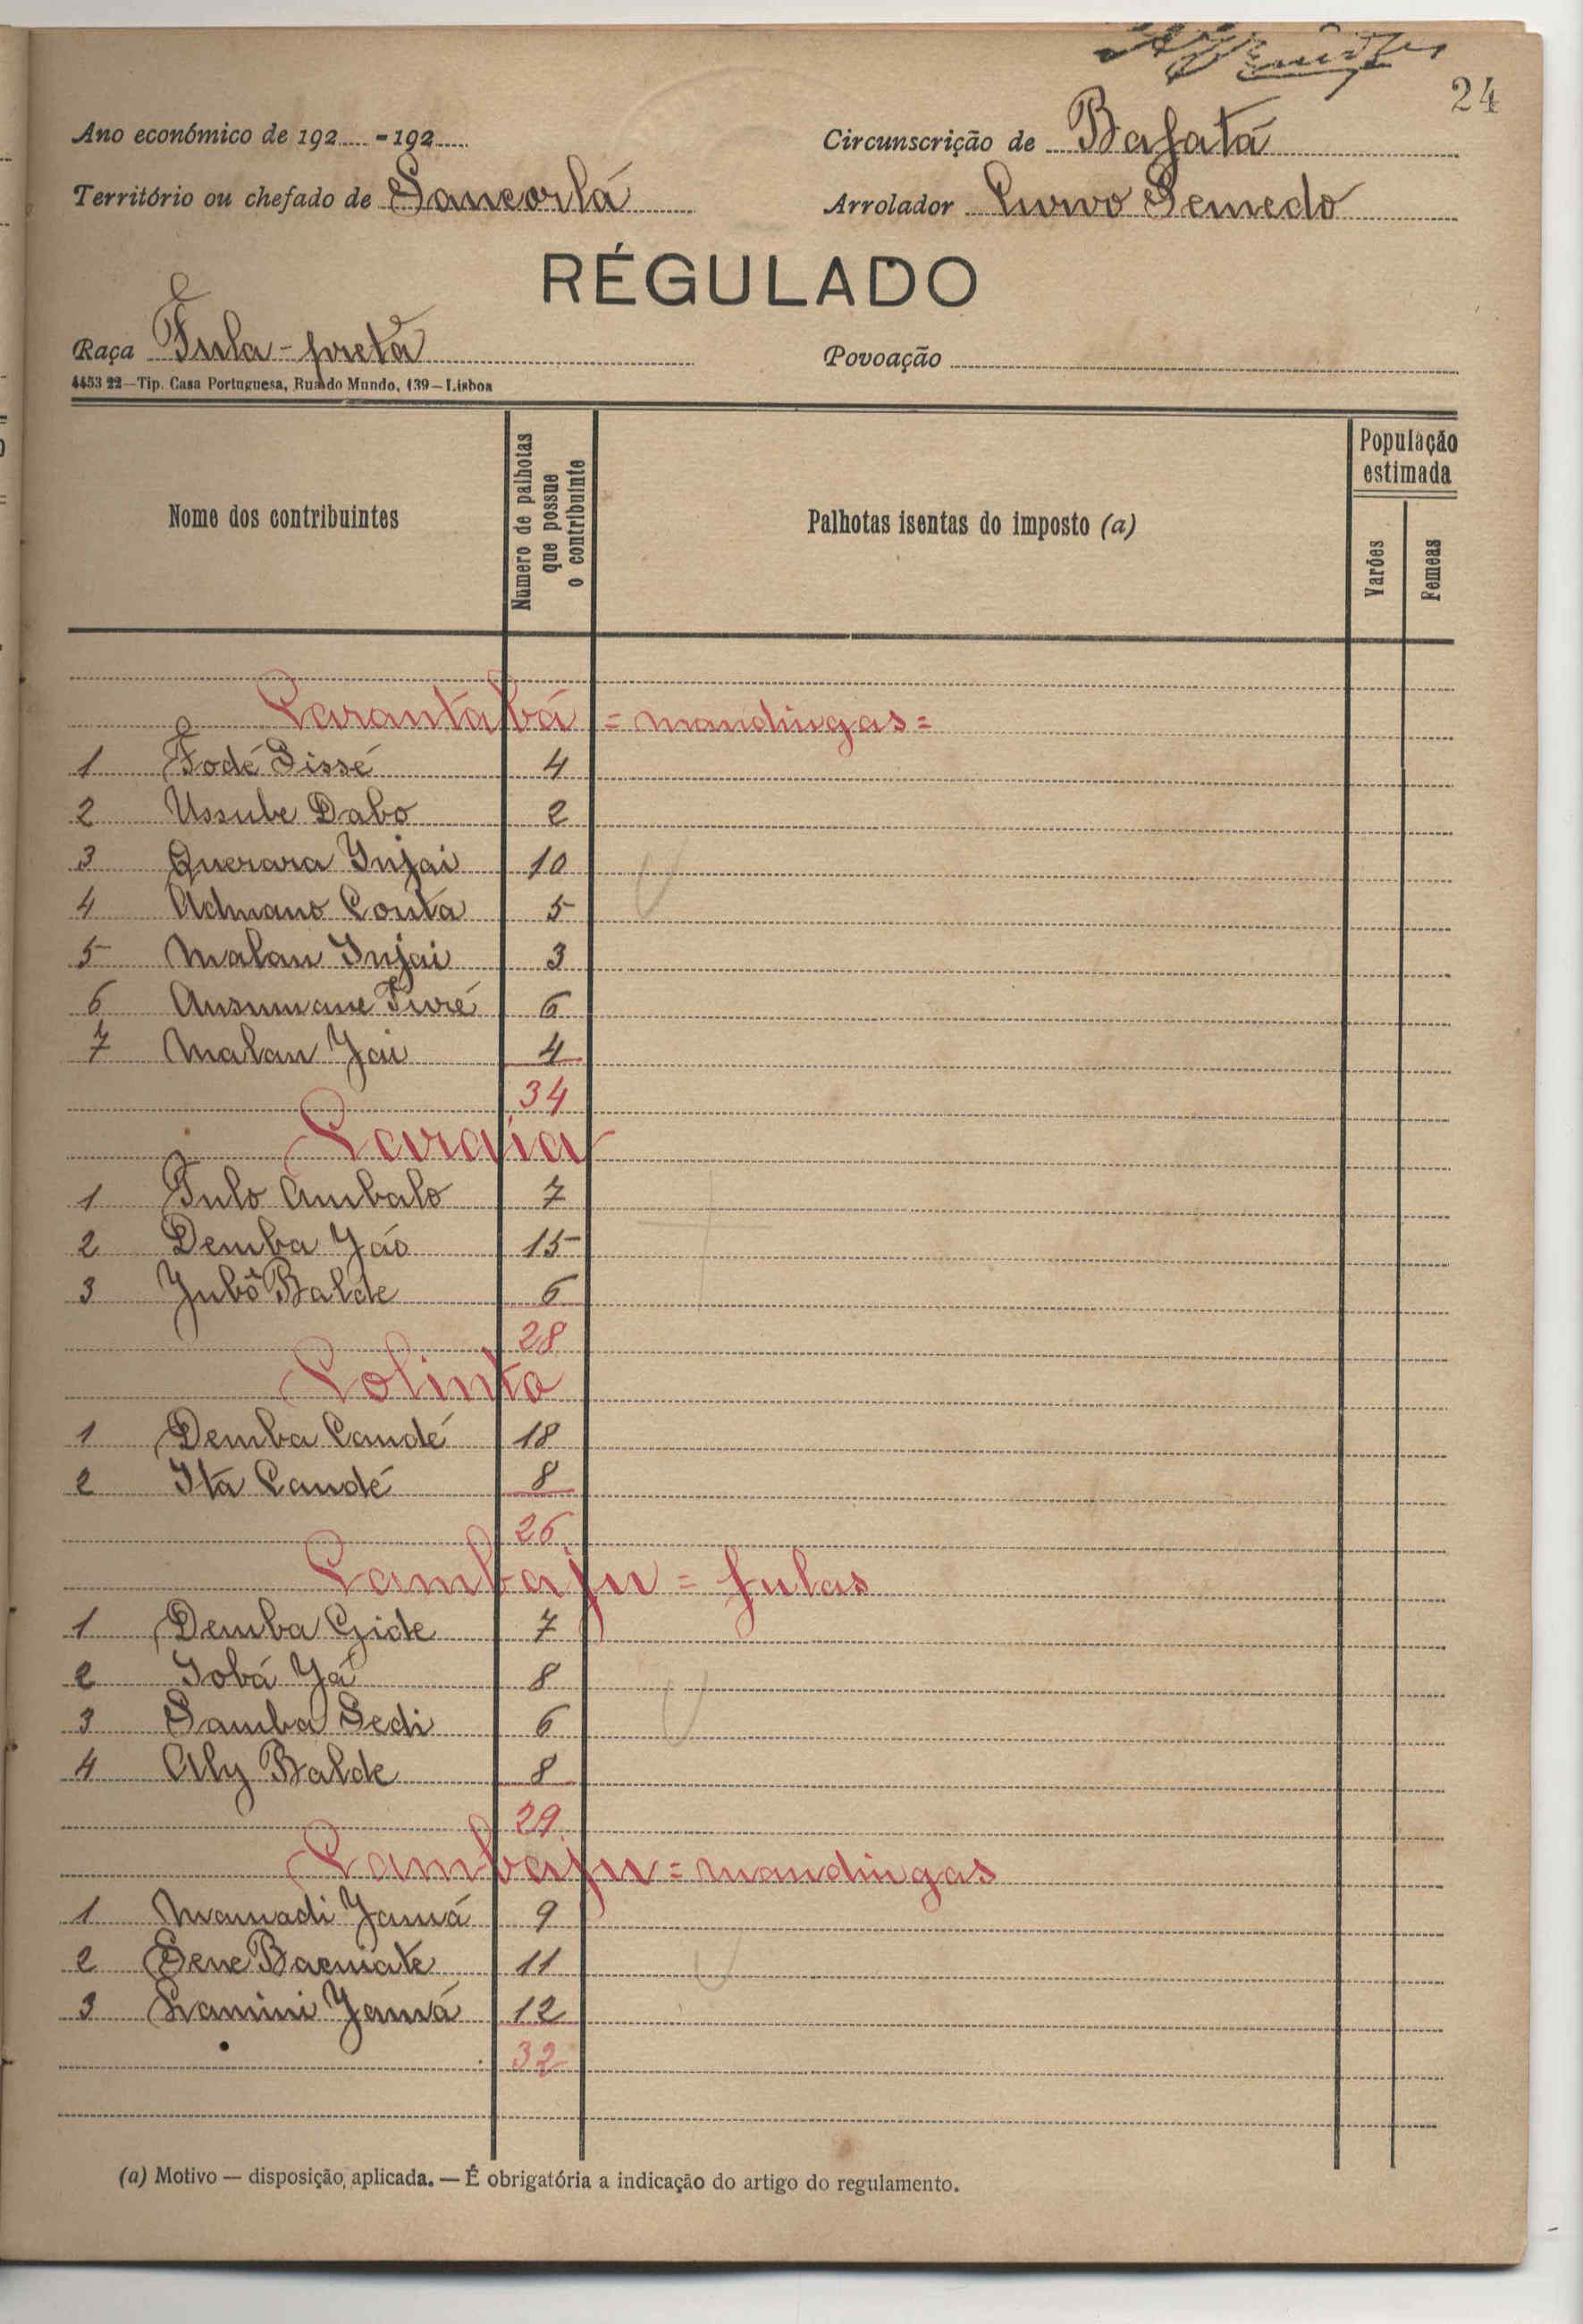 24
Ano económico de 192 -192
Circunscrição de Bafatá
Território ou chefado de Sancorlá
Arrolador Curvo Semedo
RÉGULADO
Raça Fula-preta
Povoação
4453 22—Tip. Casa Portuguesa, Rua do Mundo, 139—Lisboa
Nome dos contribuintes
Número de palhotas que possue o contribuinte
Palhotas isentas do imposto (a)
População estimada
Varões
Femeas
Carantabá = mandingas =
1 Fodé Sissé 4
2 Ussube Dabo 2
3 Querara Injai 10
4 Admano Conta 5
5 Malan Injai 3
6 Ansumane Turé 6
7 Malan Jai 4
34
Caraia
1 Tulo Ambalo 7
2 Demba Jáo 15
3 Jubô Balde 6
28
Colinto
1 Demba Candé 18
2 Ita Candé 8
26
Cambaju = fulas
1 Demba Gide 7
2 Iobá Já 8
3 Samba Sedi 6
4 Aly Balde 8
29
Cambaju = mandingas
1 Mamadi Jamá 9
2 Sene 11
3 Lamini Jamá 12
32
(a) Motivo — disposição aplicada. — É obrigatória a indicação do artigo do regulamento.